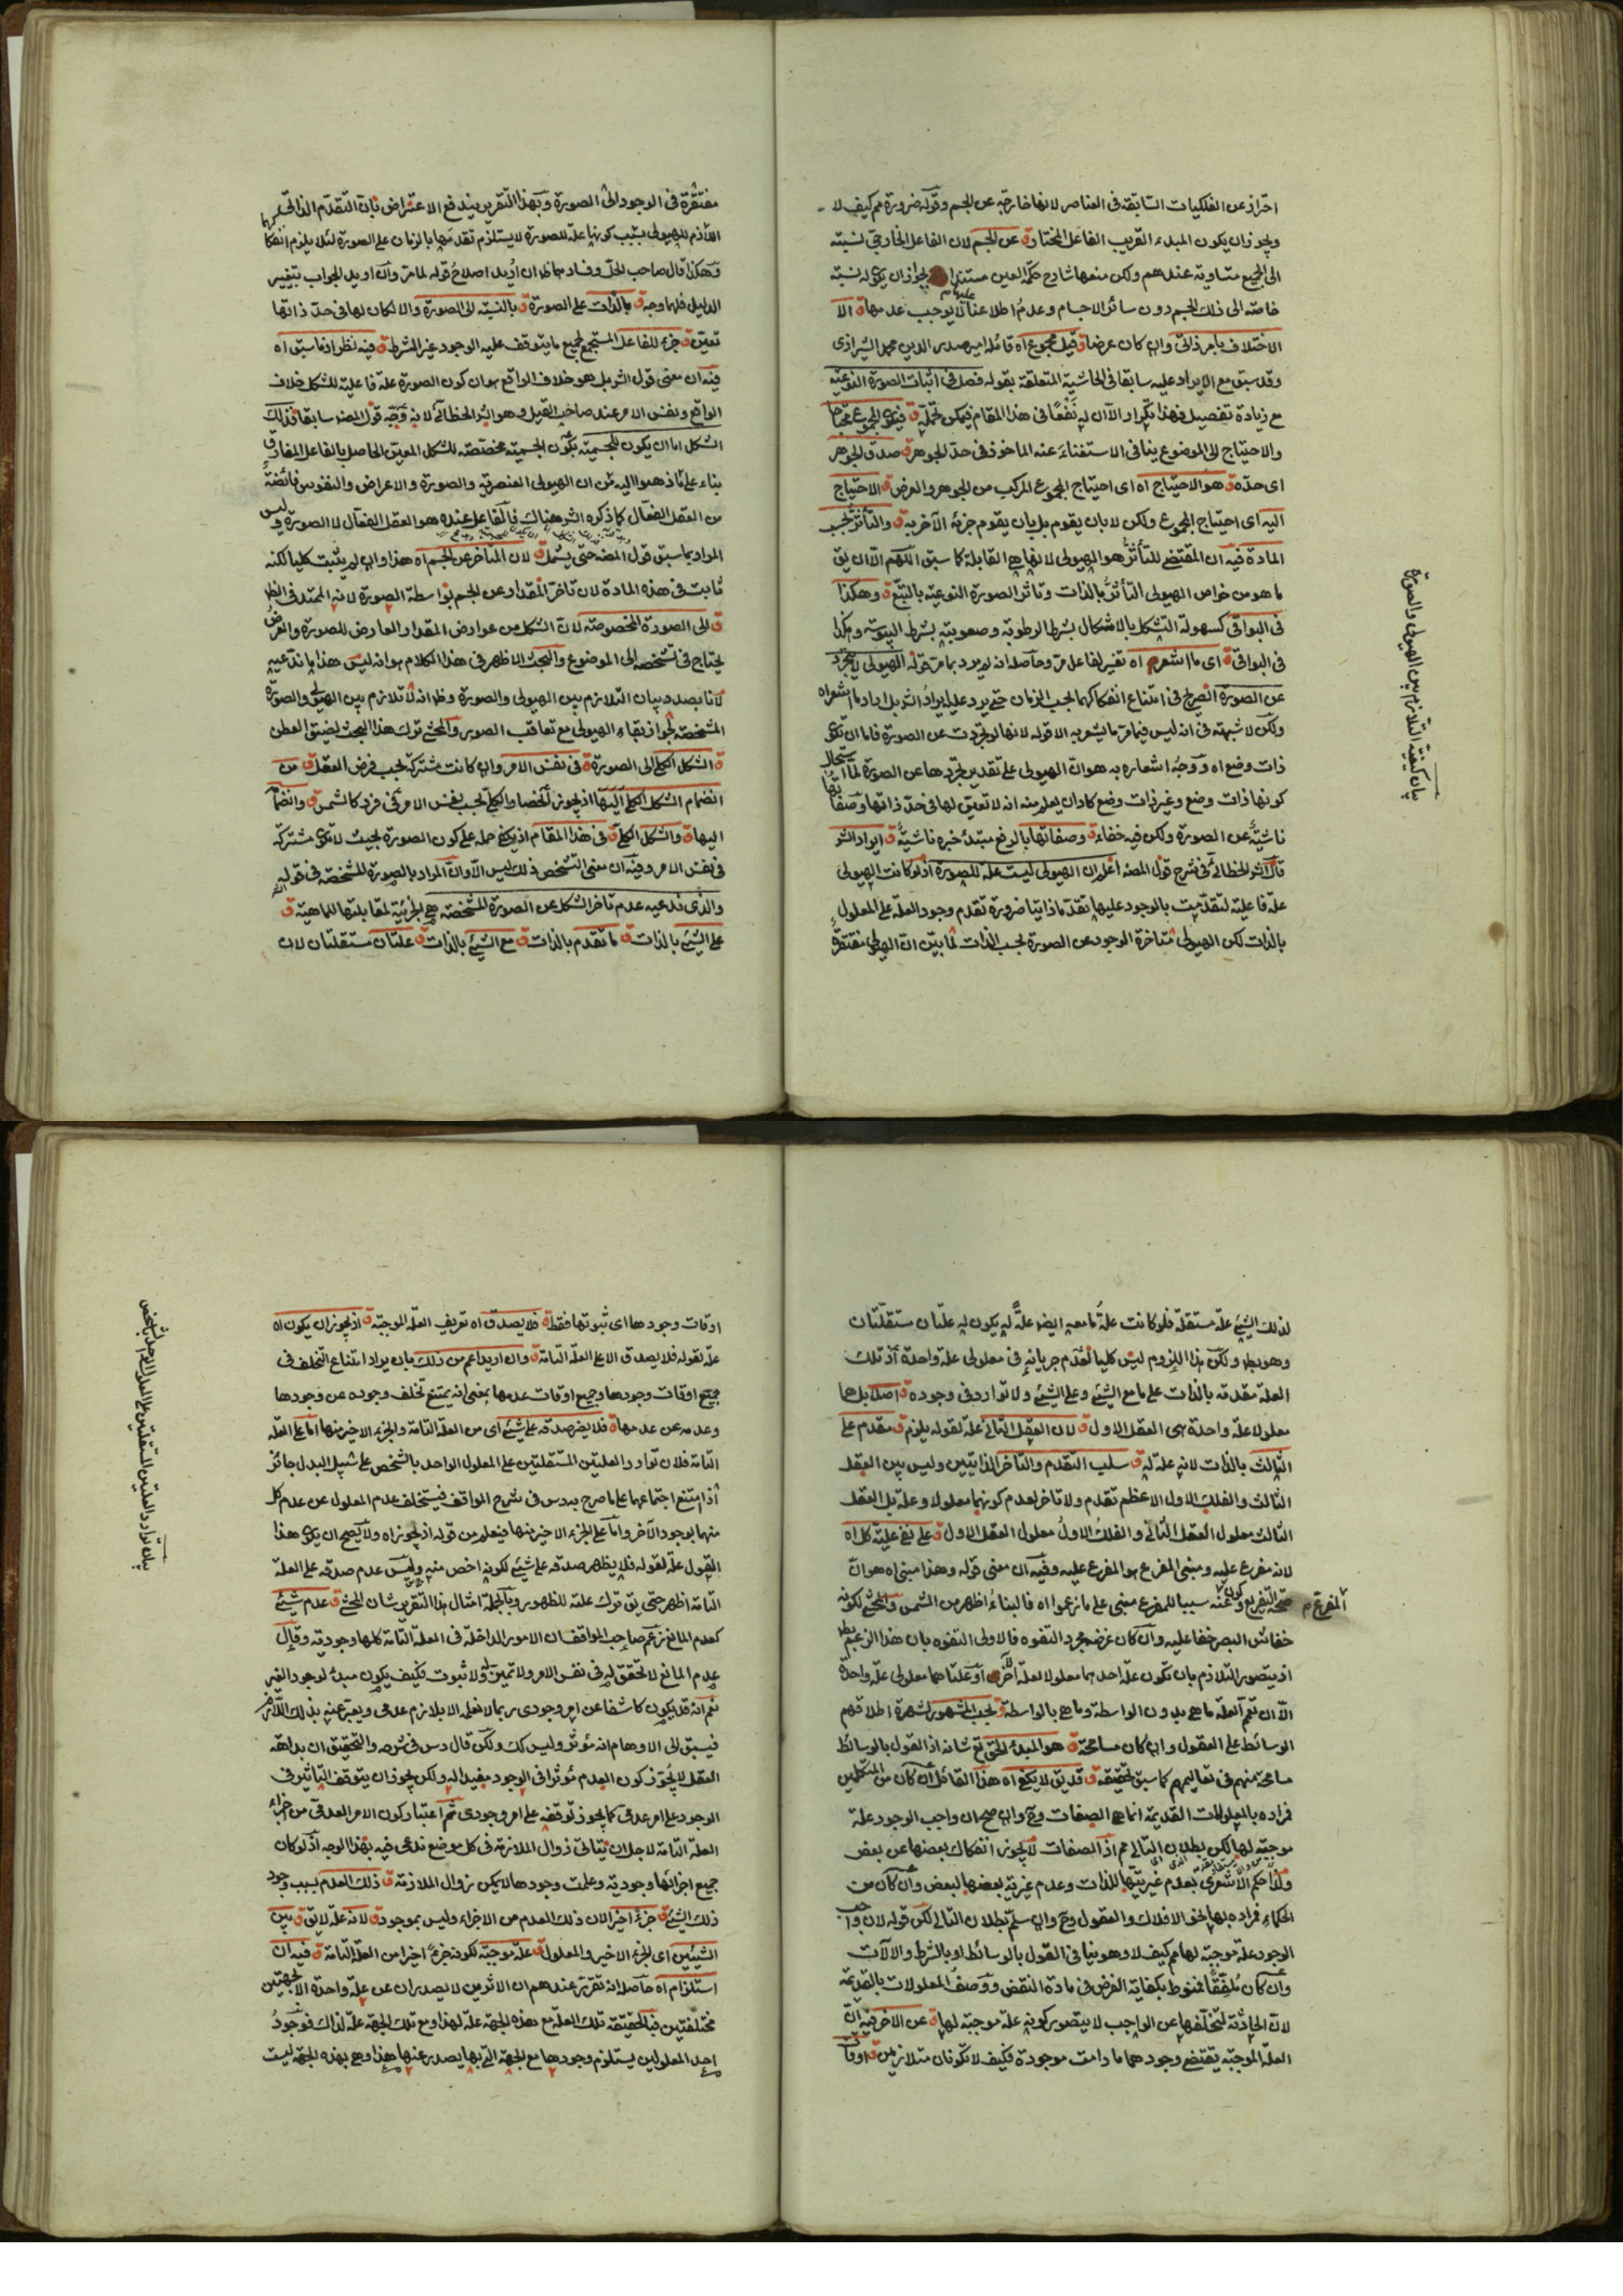 احتراز عن الفلكيات السابقة في العناصر لانها خارجة عن الجسم وقوله ضرورة مم كيف لا
ويجوز ان يكون المبدء القريب الفاعل المختار ق عن الجسم لان الفاعل الخارجي نسبته
الى الجميع متساوية عندهم ولكن منعها شارح حكمة العين مستندا يجوز ان يكون له نسبة
خاصة الى ذلك الجسم دون سائر الاجسام وعدم اطلاعنا عليها لا يوجب عدمها ق الا
الاختلاف بامر ذاتي وان كان عرضا ق قيل مجموع اه قائله امير صدر الدين محمد الشيرازي
وقد سبق مع الايراد عليه سابقا في الحاشية المتعلقة بقوله فصل في اثبات الصورة النوعية
مع زيادة تفصيل فهذا تكرار الا ان له نفعا في هذا المقام فيمكن تحمله ق فيكون المجموع محتاجا
والاحتياج الى الموضوع ينافي الاستغناء عنه الماخوذ في حد الجوهر ق صدق الجوهر
اى حده ق هو الاحتياج اه اى احتياج المجموع المركب من الجوهر والعرض ق الاحتياج
اليه اى احتياج المجموع ولكن لا بان يقوم بل بان يقوم جزئه الآخر به ق والتأثر بحسب
المادة فيه ان المقتضي للتأثر هو الهيولى لانها هي القابلة كما سبق اللهم الا ان يق
ما هو من خواص الهيولى التأثر بالذات وتاثر الصورة النوعية بالتبع ق وهكذا
في البواقي كسهولة التشكل بالاشكال بشرط الرطوبة وصعوبته بشرط اليبوسة وهكذا
في البواقي ق اى ما اشعر به اه تفسير لفاعل مر وحاصله انه لم يرد بما مر قوله الهيولى لا تتجرد
عن الصورة الصريح في امتناع انفكاكهما بحسب الزمان حتى يرد عليه ايراد الشر بل اراد ما اشعر اه
ولكن لا شبهة في انه ليس فيما مر ما يشعر به الا قوله لانها لو تجردت عن الصورة فاما ان تكون
ذات وضع اه ووجه اشعاره به هو ان الهيولى على تقدير تجردها عن الصورة لما استحال
كونها ذات وضع وغير ذات وضع كاد ان يعلم منه انه لا تعين لها في حد ذاتها وصفاتها
ناشية عن الصورة ولكن فيه خفاء ق وصفاتها بالرفع مبتدء خبره ناشية ق ايراد الشر
قال الشر الخطائي في شرح قول المصه اعلم ان الهيولى ليست علة للصورة اذ لو كانت الهيولى
علة فاعلية لتقدمت بالوجود عليها تقدما ذاتيا ضرورة تقدم وجود العلة على المعلول
بالذات لكن الهيولى متاخرة الوجود عن الصورة بحسب الذات لما بين ان الهيولى مفتقرة
بيان كيفية التلازم بين الهيولى والصورة
مفتقرة في الوجود الى الصورة وبهذا التقرير يندفع الاعتراض بان التقدم الذاتي
اللازم للهيولى بسبب كونها علة للصورة لا يستلزم تقدمها بالزمان على الصورة لئلا يلزم انفكاكها
وهكذا قال صاحب الحل وفساده ظ ان اريد اصلاح قوله لما مر وان اريد الجواب بتغيير
الدليل فلها وجه ق بالذات على الصورة ق بالنسبة الى الصورة والا لكان لها في حد ذاتها
تعين ق جزء للفاعل المستجمع لجميع ما يتوقف عليه الوجود غير الشرط ق فيه نظر اذ ما سبق اه
فيه ان معنى قول الشر بل هو خلاف الواقع هو ان كون الصورة علة فاعلية للشكل خلاف
الواقع ونفس الامر عند صاحب القيل وهو الشر الخطائي لانه وجه قول المصه سابقا فذلك
الشكل اما ان يكون للجسمية بكون الجسمية مخصصة للشكل المعين الحاصل بالفاعل المفارق
بناء على ما ذهبوا اليه من ان الهيولى العنصرية والصورة والاعراض والنفوس فائضة
من العقل الفعال كما ذكره الشر هناك فالفاعل عنده هو العقل الفعال لا الصورة وليس
المراد بما سبق قول المصه حتى يشمل ق لان المتأخر عن الجسم اه هذا وان لم يثبت كليا لكنه
ثابت في هذه المادة لان تاخر المقدار عن الجسم بواسطة الصورة لانه الممتد في الظ
ق الى الصورة المخصوصة لان الشكل من عوارض المقدار العارض للصورة والعرض
يحتاج في تشخصه الى الموضوع والبحث الاظهر في هذا الكلام هو انه ليس هذا ما ندعيه
لانا بصدد بيان التلازم بين الهيولى والصورة وظ انه لا تلازم بين الهيولى والصورة
المشخصة لجواز بقاء الهيولى مع تعاقب الصور والمحشي ترك هذا البحث لضيق العطن
ق الشكل الكلي الى الصورة ق في نفس الامر وان كانت مشتركة بحسب فرض العقل ق من
انضمام الشكل الكلي اليها اذ يجوز انحصار الكلي بحسب نفس الامر في فرد كالشمس ق وانضمام
اليها ق والشكل الكلي ق في هذا المقام اذ يكفي حمله على كون الصورة بحيث لا تكون مشتركة
في نفس الامر وفيه ان معنى التشخص ذلك ليس الا وان المراد بالصورة المشخصة في قوله
والذى ندعيه عدم تاخر الشكل عن الصورة المشخصة هي الجزئية لمقابلتها للماهية ق
على الشيئ بالذات ق ما تقدم بالذات ق مع الشيئ بالذات ق علتان مستقلتان لان
لذلك الشيئ علة مستقلة فلو كانت علة ما معه ايضا علة له يكون له علتان مستقلتان
وهو بط ولكن هذا اللزوم ليس كليا لعدم جريانه في معلولي علة واحدة اذ تلك
العلة مقدمة بالذات على ما مع الشيئ وعلى الشيئ ولا توارد في وجوده ق اصلا بل هما
معلولا علة واحدة هى العقل الاول ق لان العقل الثاني علة لقوله يلزم ق مقدم على
الثالث بالذات لانه علة له ق سلب التقدم والتاخر الذاتيين وليس بين العقل
الثالث والفلك الاول الاعظم تقدم ولا تاخر لعدم كونهما معلولا وعلة بل العقل
الثالث معلول العقل الثاني والفلك الاول معلول العقل الاول ق على نفي علية كل اه
لانه مفرع عليه ومبنى المفرع هو المفرع عليه وفيه ان معنى قوله وهذا مبني اه هو ان
صحة التفريع وكون عنه سببا للمفرع مبني على ما زعموا اه فالبناء اظهر من الشمس والمحشي لكونه
المفرع م
خفاش البصر خفا عليه وان كان غرضه مجرد التفوه فالاولى التفوه بان هذا الزعم بط
اذ يتصور التلازم بان تكون علة احدهما معلولا لعلة الآخر او علتا هما معلولي علة واحدة
الا ان تعم العلة ما هي بدون الواسطة وما هي بالواسطة ق بحسب المشهور لشهرة اطلاقهم
الوسائط على العقول وان كان مسامحة ق هو المبدء الحق تع شانه اذ القول بالوسائط
مسامحة منهم في تعاليمهم كما سبق تحقيقه ق قد يق لا يكفي اه هذا القائل ان كان من المتكلمين
فمراده بالمعلولات القديمة انما هي الصفات وح وان صح ان واجب الوجود علة
موجبة لها لكن بطلان التالي مم اذ الصفات لا يجوز انفكاك بعضها عن بعض
ولذا حكم الاشعرى بعدم غيريتها للذات وعدم غيرية بعضها لبعض وان كان من
الحكماء فمراده بها نحو الافلاك والعقول وح وان سلم بطلان التالي لكن قوله لان واجب
الوجود علة موجبة لها مم كيف لا وهو ينافي القول بالوسائط او بالشرط والآلات
وان كان ملفقا فمنوط بكفاية الفرض في مادة النقض ووصف المعلولات بالقديمة
لان الحادثة لتخلفها عن الواجب لا يتصور كونه علة موجبة لها ق عن الآخر فيه ان
العلة الموجبة يقتضي وجودهما ما دامت موجودة فكيف لا تكونان متلازمين ق اوقات
اوقات وجودها اى ثبوتها فقط ق فلا يصدق اه تعريف العلة الموجبة ق اذ يجوز ان يكون اه
علة لقوله فلا يصدق الا على العلة التامة ق وان اريد اعم من ذلك بان يراد امتناع التخلف في
جميع اوقات وجودها وجميع اوقات عدمها بمعنى انه يمتنع تخلف وجوده عن وجودها
وعدمه عن عدمها ق فلا يضر صدقه على شيئ اى من العلة التامة والجزء الاخير منها اما على العلة
التامة فلان توارد العلتين المستقلتين على المعلول الواحد بالشخص على سبيل البدل جائز
اذا امتنع اجتماعهما على ما صرح به دس في شرح المواقف فيستخلف عدم المعلول عن عدم كل
منهما بوجود الآخر واما على الجزء الاخير منها فيعلم من قوله اذ يجوز اه ولا يصح ان يكون هذا
القول علة لقوله فلا يظهر صدقه على شيئ لكونه اخص منه وليس عدم صدقه على العلة
التامة اظهر حتى يق ترك علته للظهور وبالجملة امثال هذا التقرير شان المحشي ق عدم شيئ
كعدم المانع زعم صاحب المواقف ان الامور الداخلة في العلة التامة كلها وجودية وقال
عدم المانع لا تحقق له في نفس الامر ولا تميز له ولا ثبوت فكيف يكون مبدء لوجود الغير
نعم انه قد يكون كاشفا عن امر وجودى ربما لا نعلمه الا بلازم عدمي ويعبر عنه بذلك اللازم
فيسبق الى الاوهام انه مؤثر وليس كك ولكن قال دس في شرحه والتحقيق ان بداهة
العقل لا يجوز كون العدم مؤثرا في الوجود مفيدا له ولكن يجوز ان يتوقف التاثير في
الوجود على امر عدمي كما يجوز توقفه على امر وجودى ثم اعتبار كون الامر العدمي من اجزاء
العلة التامة لاجل ان يتاتى زوال الملازمة في كل موضع تدعى فيه بهذا الوجه اذ لو كان
جميع اجزائها وجودية وعلمت وجودها لا يمكن زوال الملازمة ق ذلك العدم بسبب وجود
ذلك الشيئ ق جزءا اخيرا لان ذلك العدم من الاجزاء وليس بموجود ق لانه علة لا يق ق بين
الشيئين اى الجزء الاخير والمعلول ق علة موجبة لكونه جزءا اخيرا من العلة التامة ق فيه ان
استلزام اه حاصله انه تقرر عندهم ان الاثنين لا يصدران عن علة واحدة الا بجهتين
مختلفتين فبالحقيقة تلك العلة مع هذه الجهة علة لهذا ومع تلك الجهة علة لذاك فوجود
احد المعلولين يستلزم وجودها مع الجهة التي بها يصدر عنها هذا وهي بهذه الجهة ليست
بيان توارد العلتين المستقلتين على المعلول الواحد بالشخص